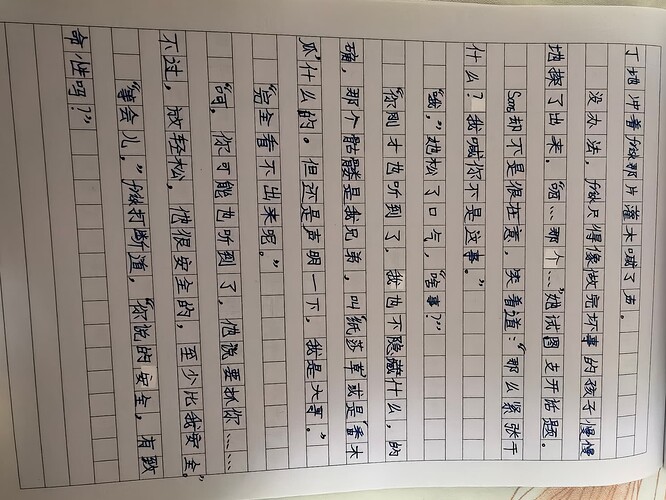 了地冲着frisk那片灌木喊了声。
没办法，frisk只得像做完坏事的孩子慢慢
地探了出来。“嗯…那个…”她试图支开话题。
Sans却不是很在意，笑着道：“那么紧张干
什么？我喊你不是这事。”
“哦，”她松了口气，“啥事？”
“你刚才也听到了，我也不隐藏什么，的
确，那个骷髅是我兄弟，叫‘纸莎草’或是‘番木
瓜’什么的。但还是声明一下，我是大哥。”
“完全看不出来呢。”
“呵，你可能也听到了，他说要抓你……
不过，放轻松，他很安全的，至少比我安全。”
“等会儿，”frisk打断道，“你说的安全，有致
命性吗？”